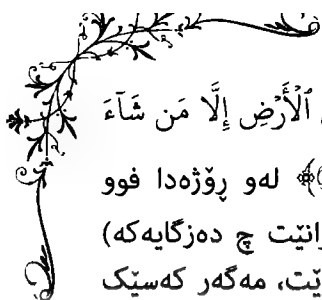 ٱلْأَرْضِ إِلَّا مَن شَآءَ
﴾ لەو ڕۆژەدا فوو
چ دەزگایەکە)
مەگەر کەسێک